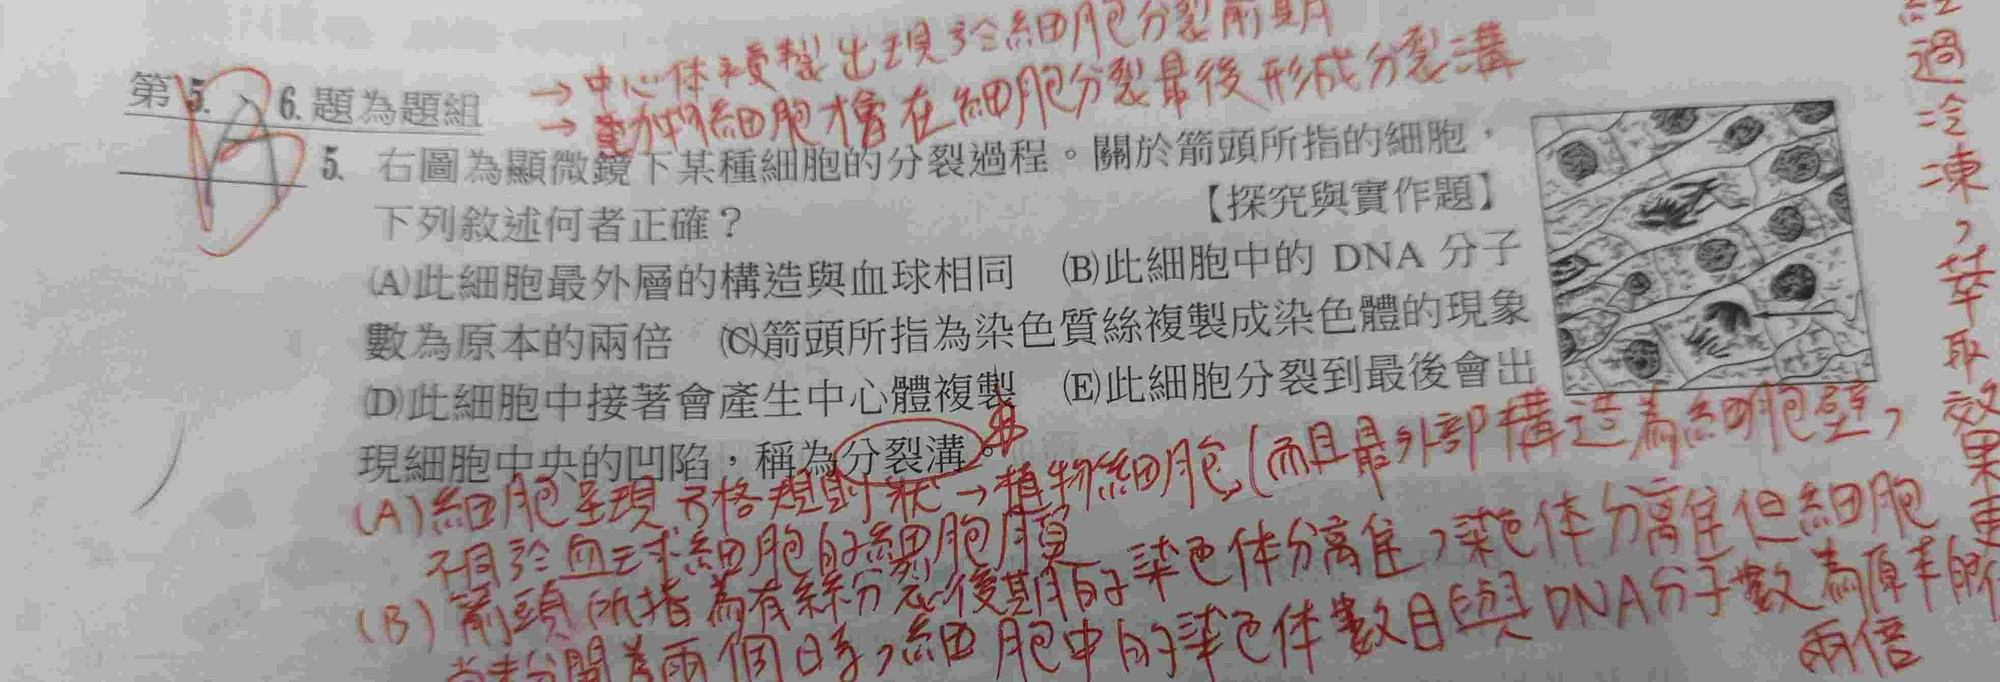 →中心体複製出現於細胞分裂前期
第5. 6.題為題組
→動物細胞才會在細胞分裂最後形成分裂溝
B
5. 右圖為顯微鏡下某種細胞的分裂過程。關於箭頭所指的細胞，
下列敘述何者正確？ 【探究與實作題】
(A)此細胞最外層的構造與血球相同 (B)此細胞中的 DNA 分子
數為原本的兩倍 (C)箭頭所指為染色質絲複製成染色體的現象
(D)此細胞中接著會產生中心體複製 (E)此細胞分裂到最後會出
現細胞中央的凹陷，稱為分裂溝。
(A)細胞呈現方格規則狀→植物細胞(而且最外部構造為細胞壁，
不同於血球細胞的細胞膜
(B)箭頭所指為有絲分裂後期的染色体分離佳，染色体分離佳但細胞
尚未分開為兩個時，細胞中的染色体數目與DNA分子數為原本的
兩倍
經過冷凍，萃取效果更